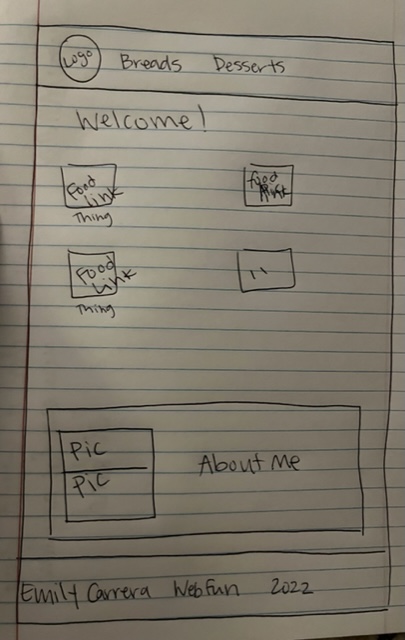 Logo Breads Desserts
Welcome!
Food Link
Food Link
Thing
Food Link
"
Thing
Pic
Pic
About Me
Emily Carrera WebFun 2022